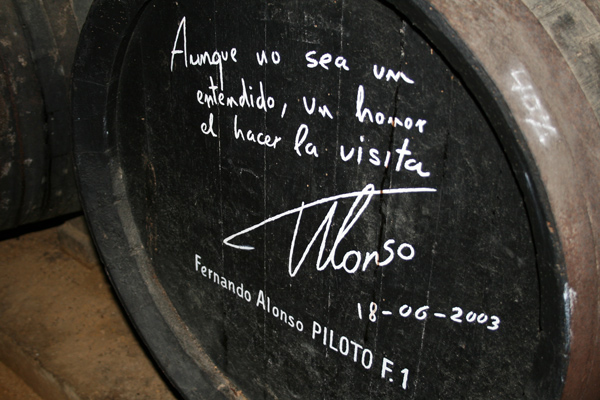 Aunque no sea un
entendido, un honor
el hacer la visita
Alonso
18-06-2003
Fernando Alonso PILOTO F.1